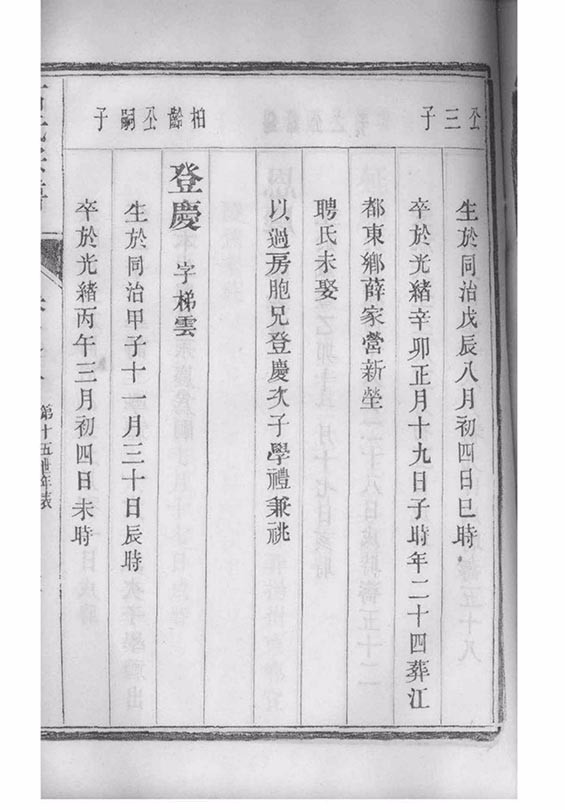 公三子
生於同治戊辰八月初四日巳時
卒於光緒辛卯正月十九日子時年二十四葬江
都東鄉薛家營新塋
聘氏未娶
以過房胞兄登慶次子學禮兼祧
柏齡公嗣子
登慶 字梯雲
生於同治甲子十一月三十日辰時
卒於光緒丙午三月初四日未時
第十五世年表